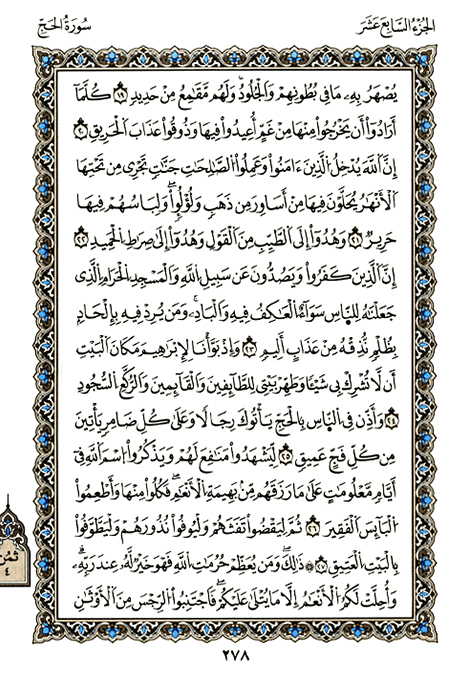 الجُزْءُ السَّابِعُ عَشَرَ
سُورَةُ الحَجِّ
يُصْهَرُ بِهِۦ مَا فِى بُطُونِهِمْ وَالْجُلُودُ وَلَهُم مَّقَٰمِعُ مِنْ حَدِيدٍ ١٩ كُلَّمَآ
أَرَادُوٓا۟ أَنْ يَخْرُجُوا۟ مِنْهَا مِنْ غَمٍّ أُعِيدُوا۟ فِيهَا وَذُوقُوا۟ عَذَابَ الْحَرِيقِ ٢٠
إِنَّ اللَّهَ يُدْخِلُ الَّذِينَ ءَامَنُوا۟ وَعَمِلُوا۟ الصَّٰلِحَٰتِ جَنَّٰتٍ تَجْرِى مِن تَحْتِهَا
الْأَنْهَٰرُ يُحَلَّوْنَ فِيهَا مِنْ أَسَاوِرَ مِن ذَهَبٍ وَلُؤْلُؤًا وَلِبَاسُهُمْ فِيهَا
حَرِيرٌ ٢١ وَهُدُوٓا۟ إِلَى الطَّيِّبِ مِنَ الْقَوْلِ وَهُدُوٓا۟ إِلَىٰ صِرَٰطِ الْحَمِيدِ ٢٢
إِنَّ الَّذِينَ كَفَرُوا۟ وَيَصُدُّونَ عَن سَبِيلِ اللَّهِ وَالْمَسْجِدِ الْحَرَامِ الَّذِى
جَعَلْنَٰهُ لِلنَّاسِ سَوَآءٌ الْعَٰكِفُ فِيهِ وَالْبَادِۦ وَمَن يُرِدْ فِيهِ بِإِلْحَادٍ
بِظُلْمٍ نُّذِقْهُ مِنْ عَذَابٍ أَلِيمٍ ٢٣ وَإِذْ بَوَّأْنَا لِإِبْرَٰهِيمَ مَكَانَ الْبَيْتِ
أَن لَّا تُشْرِكْ بِى شَيْـًٔا وَطَهِّرْ بَيْتِى لِلطَّآئِفِينَ وَالْقَآئِمِينَ وَالرُّكَّعِ السُّجُودِ
٢٤ وَأَذِّن فِى النَّاسِ بِالْحَجِّ يَأْتُوكَ رِجَالًا وَعَلَىٰ كُلِّ ضَامِرٍ يَأْتِينَ
مِن كُلِّ فَجٍّ عَمِيقٍ ٢٥ لِّيَشْهَدُوا۟ مَنَٰفِعَ لَهُمْ وَيَذْكُرُوا۟ اسْمَ اللَّهِ فِىٓ
أَيَّامٍ مَّعْلُومَٰتٍ عَلَىٰ مَا رَزَقَهُم مِّنۢ بَهِيمَةِ الْأَنْعَٰمِ فَكُلُوا۟ مِنْهَا وَأَطْعِمُوا۟
الْبَآئِسَ الْفَقِيرَ ٢٦ ثُمَّ لِيَقْضُوا۟ تَفَثَهُمْ وَلْيُوفُوا۟ نُذُورَهُمْ وَلْيَطَّوَّفُوا۟
بِالْبَيْتِ الْعَتِيقِ ٢٧ ذَٰلِكَ وَمَن يُعَظِّمْ حُرُمَٰتِ اللَّهِ فَهُوَ خَيْرٌ لَّهُۥ عِندَ رَبِّهِۦ
وَأُحِلَّتْ لَكُمُ الْأَنْعَٰمُ إِلَّا مَا يُتْلَىٰ عَلَيْكُمْ فَاجْتَنِبُوا۟ الرِّجْسَ مِنَ الْأَوْثَٰنِ
ثُمُن
٤
٢٧٨